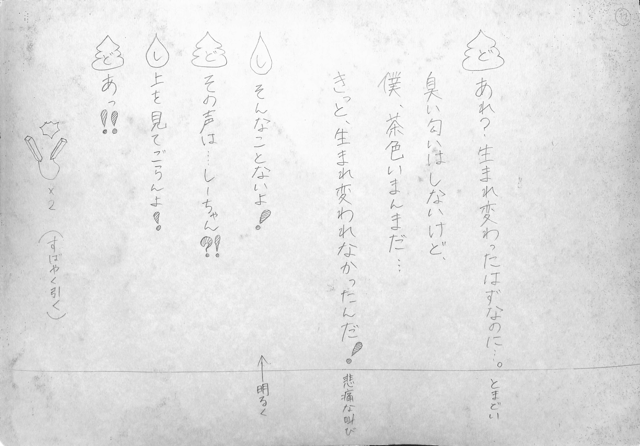 ど あれ?生まれ変わったはずなのに…。 とまどい
臭い匂いはしないけど、
僕、茶色いまんまだ…
きっと、生まれ変われなかったんだ! 悲痛な叫び
し そんなことないよ! ←明るく
ど その声は…しーちゃん?!
し 上を見てごらんよ!
ど あっ!!
×2 (すばやく引く)